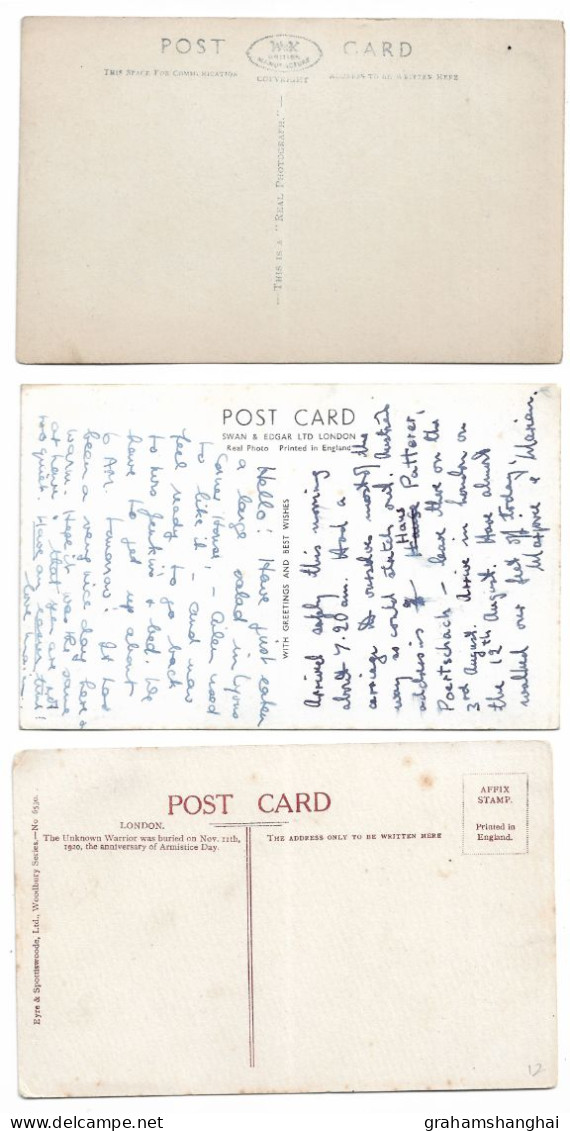 POST CARD
W&K
BRITISH
MANUFACTURE
THIS SPACE FOR COMMUNICATION
COPYRIGHT
ADDRESS TO BE WRITTEN HERE
— THIS IS A "REAL PHOTOGRAPH." —
POST CARD
SWAN & EDGAR LTD LONDON
Real Photo Printed in England
WITH GREETINGS AND BEST WISHES
Hello! Have just eaten
a large salad in Lyons
Corner House! –
to like it – and now
feel ready to go back
to Mrs Jenkins & bed. We
have to get up about
6 AM. tomorrow! It has
been a very nice day here &
warm. Hope it was the same
at home & that you are not
too quiet. Have an easier time!
Love
Arrived safely this morning
about 7.20 am. Had a
carriage to ourselves most of the
way so could stretch out. Austrian
address is Haus Patterer,
Poertschach – leave there on the
3rd August. Arrive in London on
the 12th August. Have almost
walked our feet off today!
Marjorie &
POST CARD
LONDON.
The Unknown Warrior was buried on Nov. 11th,
1920, the anniversary of Armistice Day.
THE ADDRESS ONLY TO BE WRITTEN HERE
AFFIX
STAMP.
Printed in
England.
Eyre & Spottiswoode, Ltd., Woodbury Series.—No 6530.
12
grahamshanghai